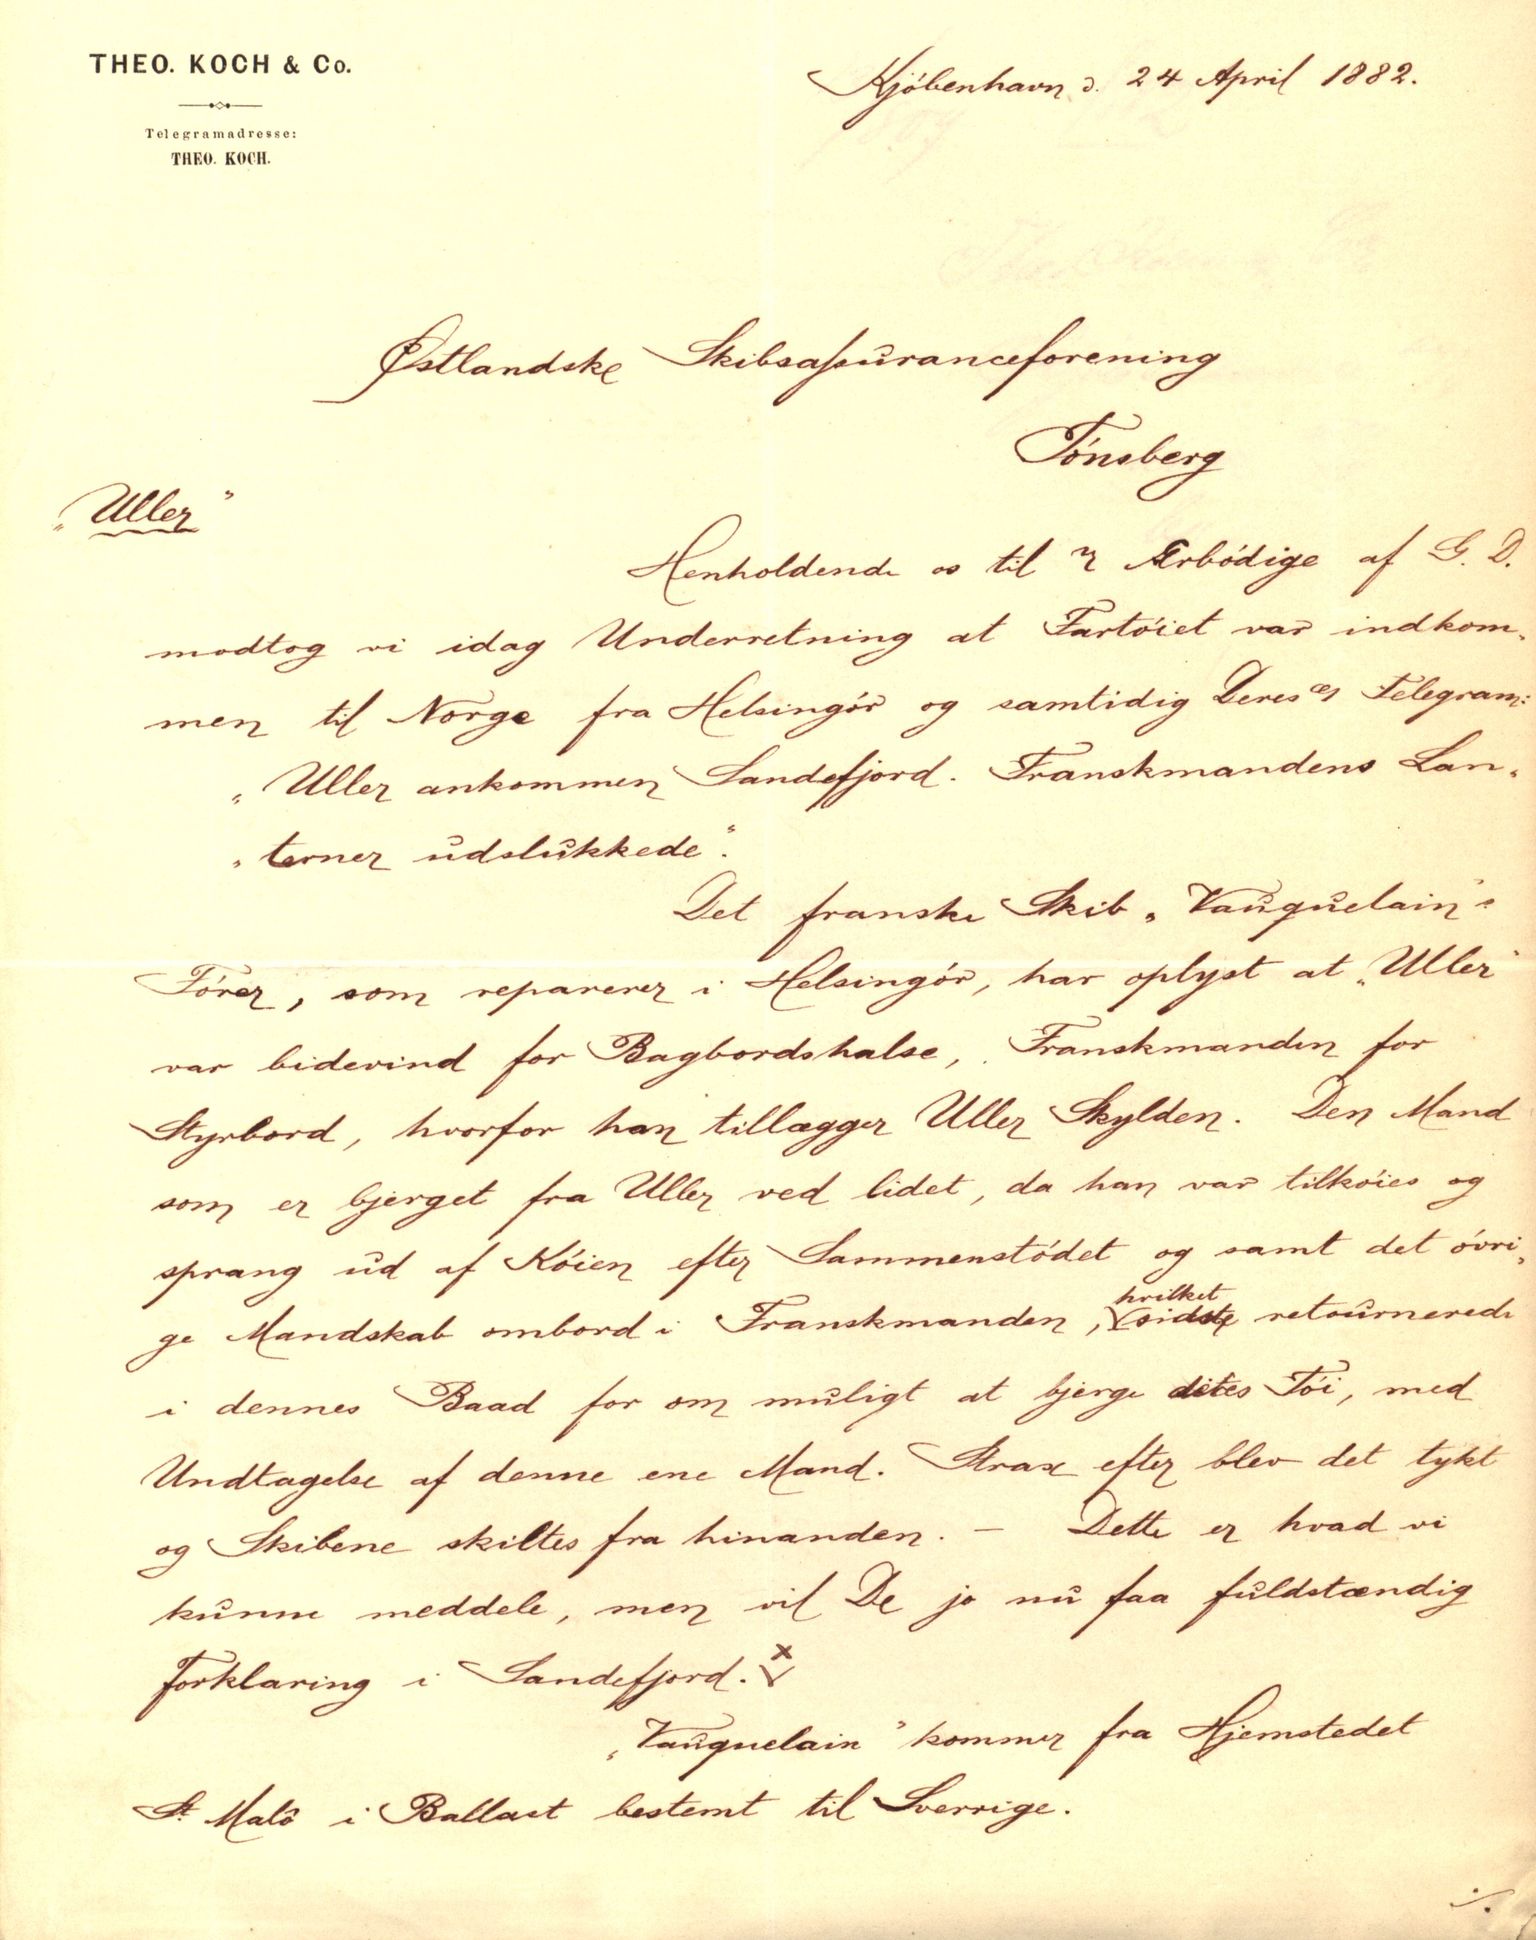 THEO. KOCH & Co.
Telegramadresse:
THEO. KOCH.
Kjøbenhavn d. 24 April 1882.
Østlandske Skibsassuranceforening
Tønsberg
„Uller"
Henholdende os til Ærbødige af G. D.
modtog vi idag Underretning at Fartøiet var indkom-
men til Norge fra Helsingør og samtidig Deres Telegram:
„Uller ankommen Sandefjord. Franskmandens Lan-
„terner udslukkede".
Det franske Skib „Vauquelain"s
Fører, som reparerer i Helsingør, har oplyst at „Uller"
var bidevind for Bagbordshalse, Franskmanden for
Styrbord, hvorfor han tillægger Uller Skylden. Den Mand
som er bjerget fra Uller ved lidet, da han var tilkøies og
sprang ud af Køien efter Sammenstødet og samt det øvri-
ge Mandskab ombord i Franskmanden, hvilket sidste retournerede
i dennes Baad for om muligt at bjerge dets Tøi, med
Undtagelse af denne ene Mand. Strax efter blev det tykt
og Skibene skiltes fra hinanden. – Dette er hvad vi
kunne meddele, men vil De jo nu faa fuldstændig
Forklaring i Sandefjord. x
„Vauquelain" kommer fra Hjemstedet
St Malô i Ballast bestemt til Sverrige.
./.